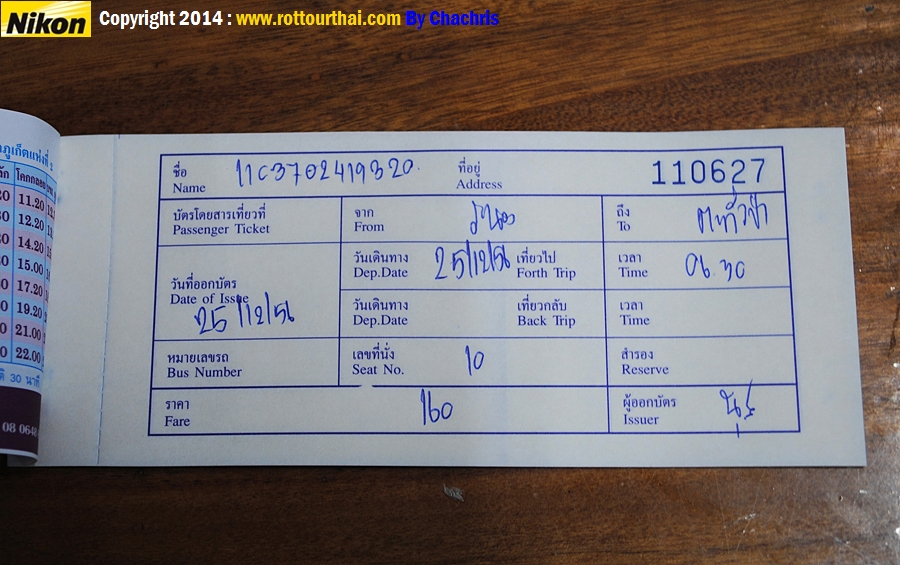 Nikon Copyright 2014 : www.rottourthai.com By Chachris
ภูเก็ตแห่งที่ 2
โคกกลอย
11.20
12.20
14.20
15.00
17.20
19.20
21.00
22.00
30 นาที
08 0648
ชื่อ 11C3702419320 ที่อยู่ 110627
Name Address
บัตรโดยสารเที่ยวที่ จาก ระนอง ถึง ตะกั่วป่า
Passenger Ticket From To
วันเดินทาง 25/12/56 เที่ยวไป เวลา 06.30
Dep.Date Forth Trip Time
วันที่ออกบัตร
Date of Issue
25/12/56
วันเดินทาง เที่ยวกลับ เวลา
Dep.Date Back Trip Time
หมายเลขรถ เลขที่นั่ง 10 สำรอง
Bus Number Seat No. Reserve
ราคา 160 ผู้ออกบัตร
Fare Issuer